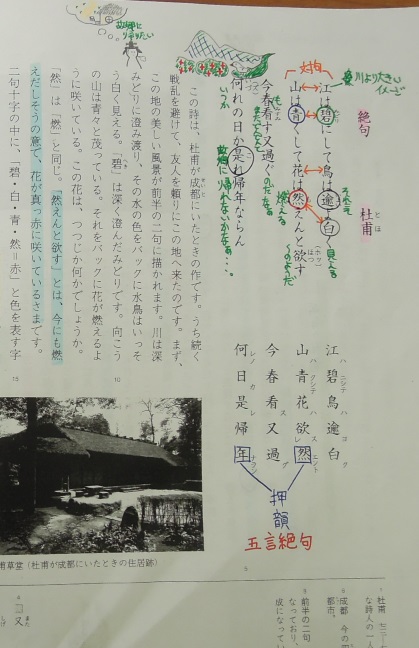 絶句
杜甫
とほ
川より大きいイメージ
対句
江は碧にして鳥は逾白く
見える
山は青くして花は然えんと欲す
ほつ
燃える
〜のようだ
今春看す又過ぐ
何れの日か是れ帰年ならん
いつか
故郷に帰れないかなぁ・・
故郷に帰りたい
江碧鳥逾白
山青花欲然
今春看又過
何日是帰年
押韻
五言絶句
この詩は、杜甫が成都にいたときの作です。うち続く
戦乱を避けて、友人を頼りにこの地へ来たのです。まず、
この地の美しい風景が前半の二句に描かれます。川は深
みどりに澄み渡り、その水の色をバックに水鳥はいっそ
う白く見える。「碧」は深く澄んだみどりです。向こう
の山は青々と茂っている。それをバックに花が燃えるよ
うに咲いている。この花は、つつじか何かでしょうか。
「然」は「燃」と同じ。「然えんと欲す」とは、今にも燃
えだしそうの意で、花が真っ赤に咲いているさまです。
二句十字の中に、「碧・白・青・然＝赤」と色を表す字
5
10
15
甫草堂（杜甫が成都にいたときの住居跡）
杜甫
な詩人の一人
成都 今の四
都市。
前半の二句
なっており、
成になってい
又